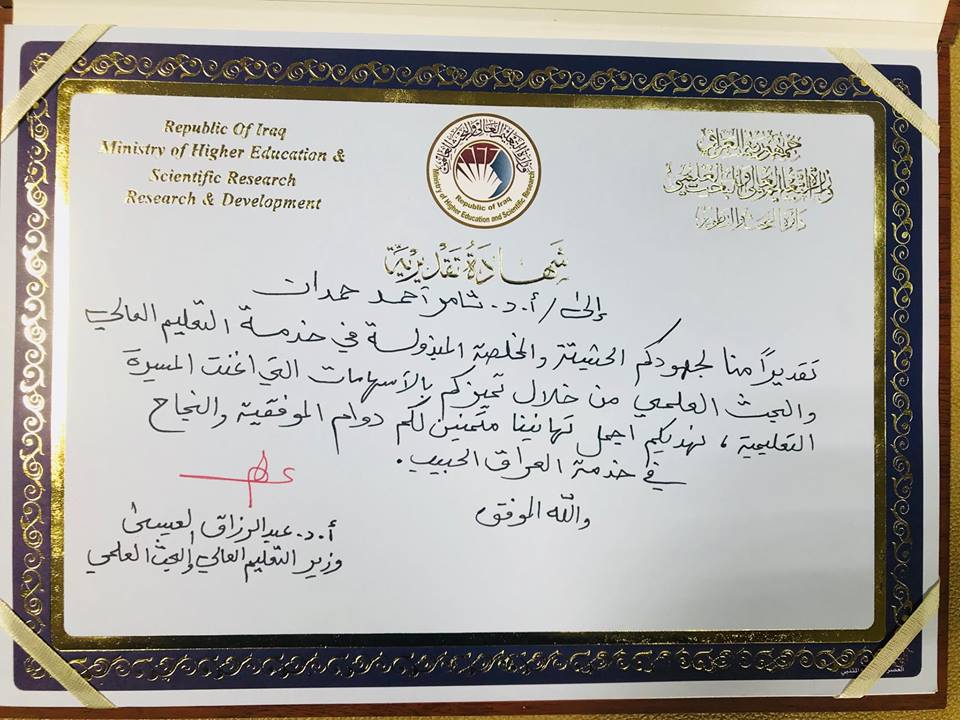 Republic Of Iraq
Ministry of Higher Education &
Scientific Research
Research & Development
وزارة التعليم العالي والبحث العلمي
Republic of Iraq
Ministry of Higher Education and Scientific Research
جمهورية العراق
وزارة التعليم العالي والبحث العلمي
دائرة البحث والتطوير
شهادة تقديرية
إلى / أ.د. ثامر أحمد حمدان
تقديراً منا لجهودكم الحثيثة والمخلصة المبذولة في خدمة التعليم العالي
والبحث العلمي من خلال تميزكم بالأسهامات التي اغنت المسيرة
التعليمية ، نهديكم اجمل تهانينا متمنين لكم دوام الموفقية والنجاح
في خدمة العراق الحبيب .
والله الموفق
أ.د. عبدالرزاق العيسى
وزير التعليم العالي والبحث العلمي